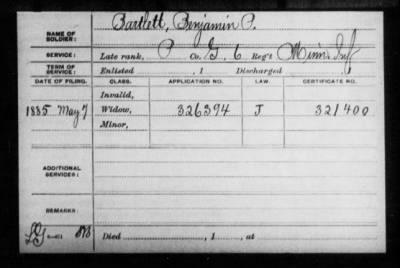 NAME OF SOLDIER: Bartlett, Benjamin P.
SERVICE: Late rank, P Co. G, 6 Reg't Minn Inf
TERM OF SERVICE: Enlisted , 1 Discharged
DATE OF FILING. CLASS. APPLICATION NO. LAW. CERTIFICATE NO.
Invalid,
1885 May 7 Widow, 326394 J 321400
Minor,
ADDITIONAL SERVICES:
REMARKS:
Died , 1 , at